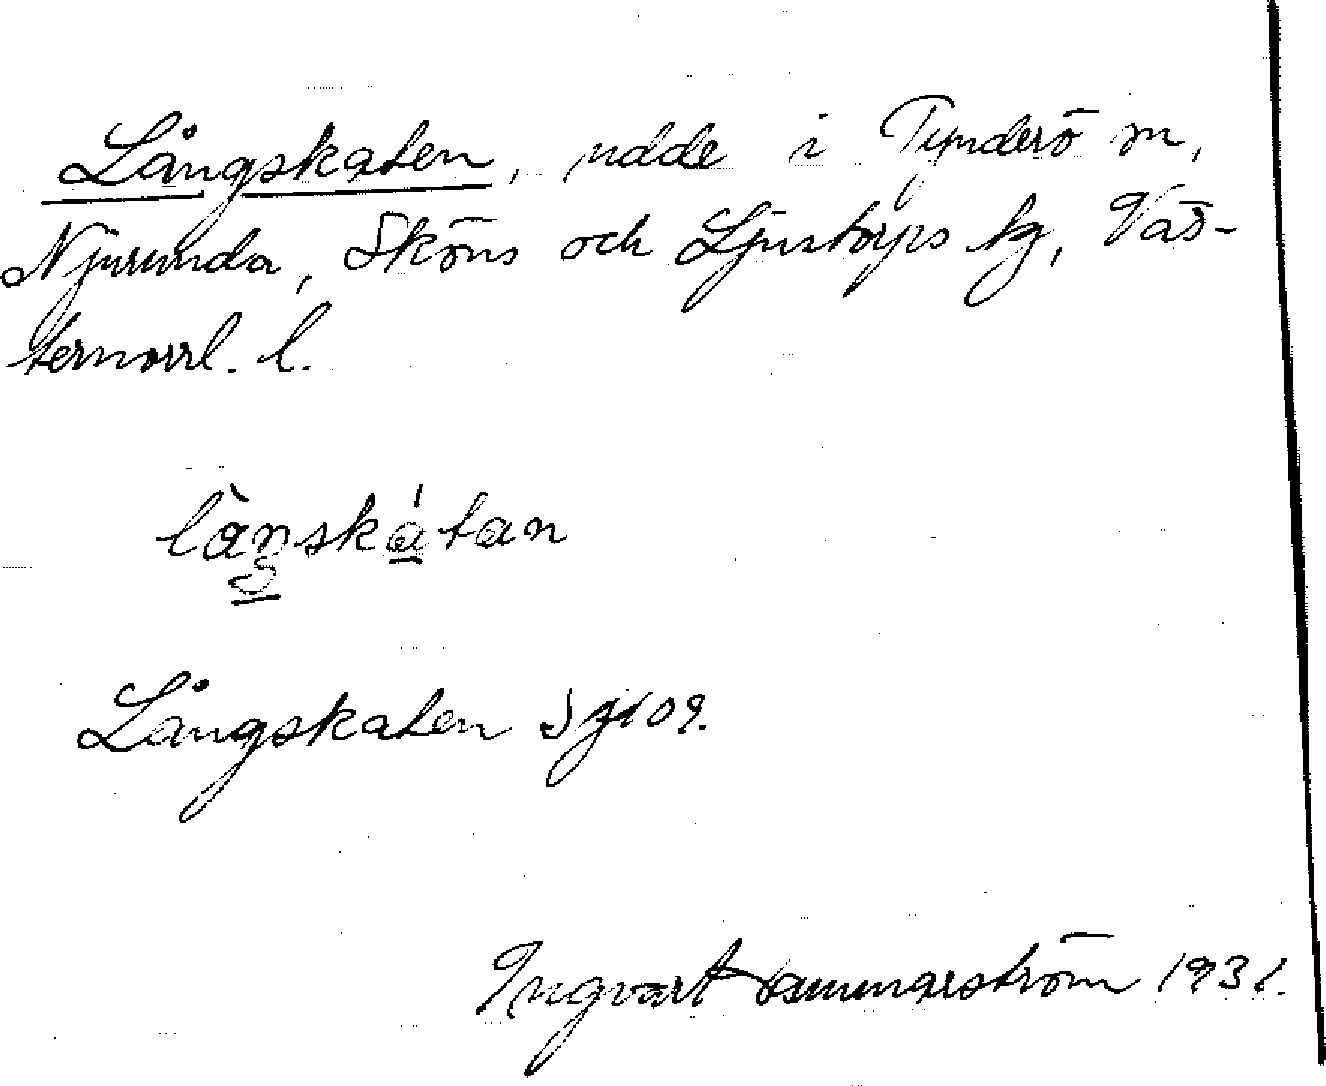 Långskaten, udde i Tynderö sn,
Njurunda, Sköns och Ljustorps tg, Väs-
ternorrl. l.
làŋskátan
Långskaten Sjk 09.
Ingvart Hammarström 1931.